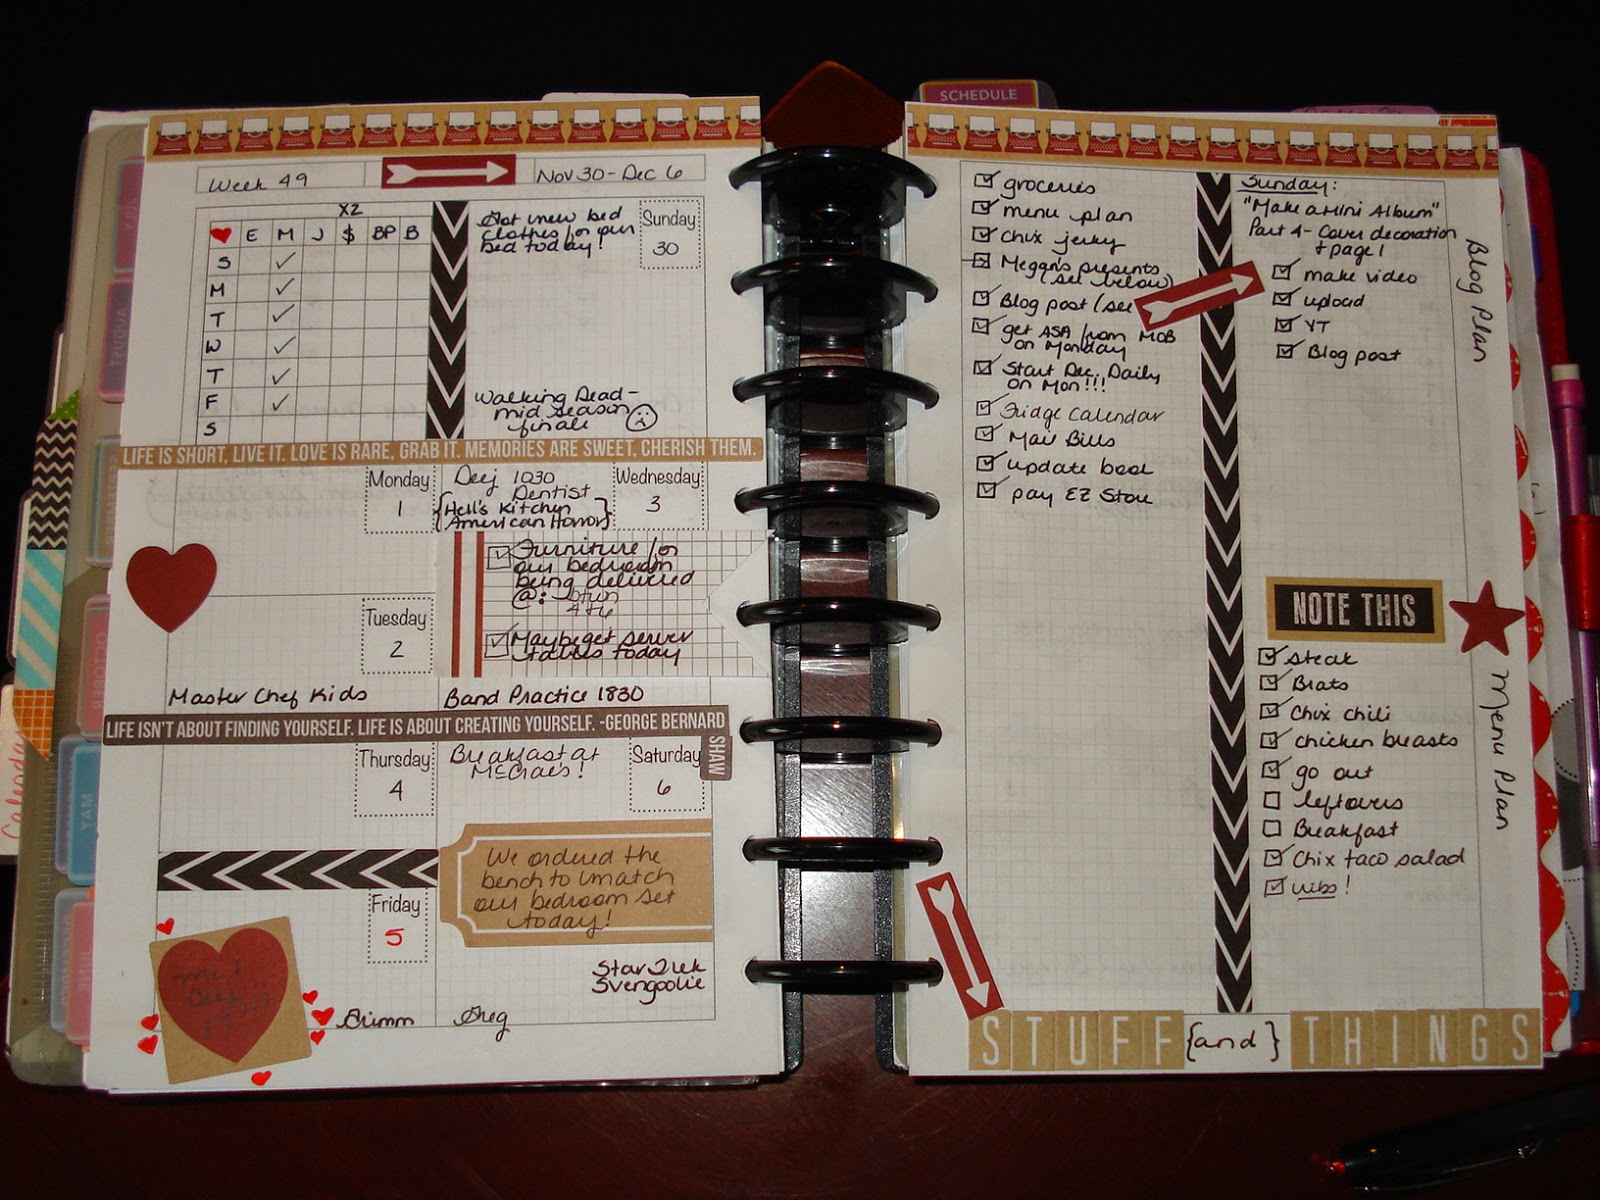 SCHEDULE
Week 49
Nov 30 - Dec 6
X2
E M J $ BP B
S
M
T
W
T
F
S
Got new bed
clothes for our
bed today!
Sunday
30
Walking Dead-
mid season
finale
LIFE IS SHORT, LIVE IT. LOVE IS RARE, GRAB IT. MEMORIES ARE SWEET, CHERISH THEM.
Monday
1
Deej 1030
Dentist
{Hell's Kitchen
American Horror}
Wednesday
3
Furniture for
our bedroom
being delivered
@: btwn
4+6
Maybe get server
tables today
Tuesday
2
Master Chef Kids
Band Practice 1830
LIFE ISN'T ABOUT FINDING YOURSELF. LIFE IS ABOUT CREATING YOURSELF. -GEORGE BERNARD
SHAW
Thursday
4
Breakfast at
McCrae's!
Saturday
6
We ordered the
bench to match
our bedroom set
today!
Friday
5
Star Trek
Svengoolie
Grimm
Greg
groceries
menu plan
Chix jerky
Megan's presents
(see below)
Blog post (see
get ASA from MOB
on Monday
Start Dec. Daily
on Mon!!!
Fridge Calendar
Mail Bills
update book
pay EZ Stor
Sunday:
"Make a Mini Album"
Part 4 - Cover decoration
+ page 1
make video
upload
YT
Blog post
Blog Plan
NOTE THIS
steak
Brats
Chix chili
chicken breasts
go out
leftovers
Breakfast
Chix taco salad
ribs!
Menu Plan
STUFF {and} THINGS
Calendar
AUGUST
SEPTEMBER
OCTOBER
MAY
JUNE